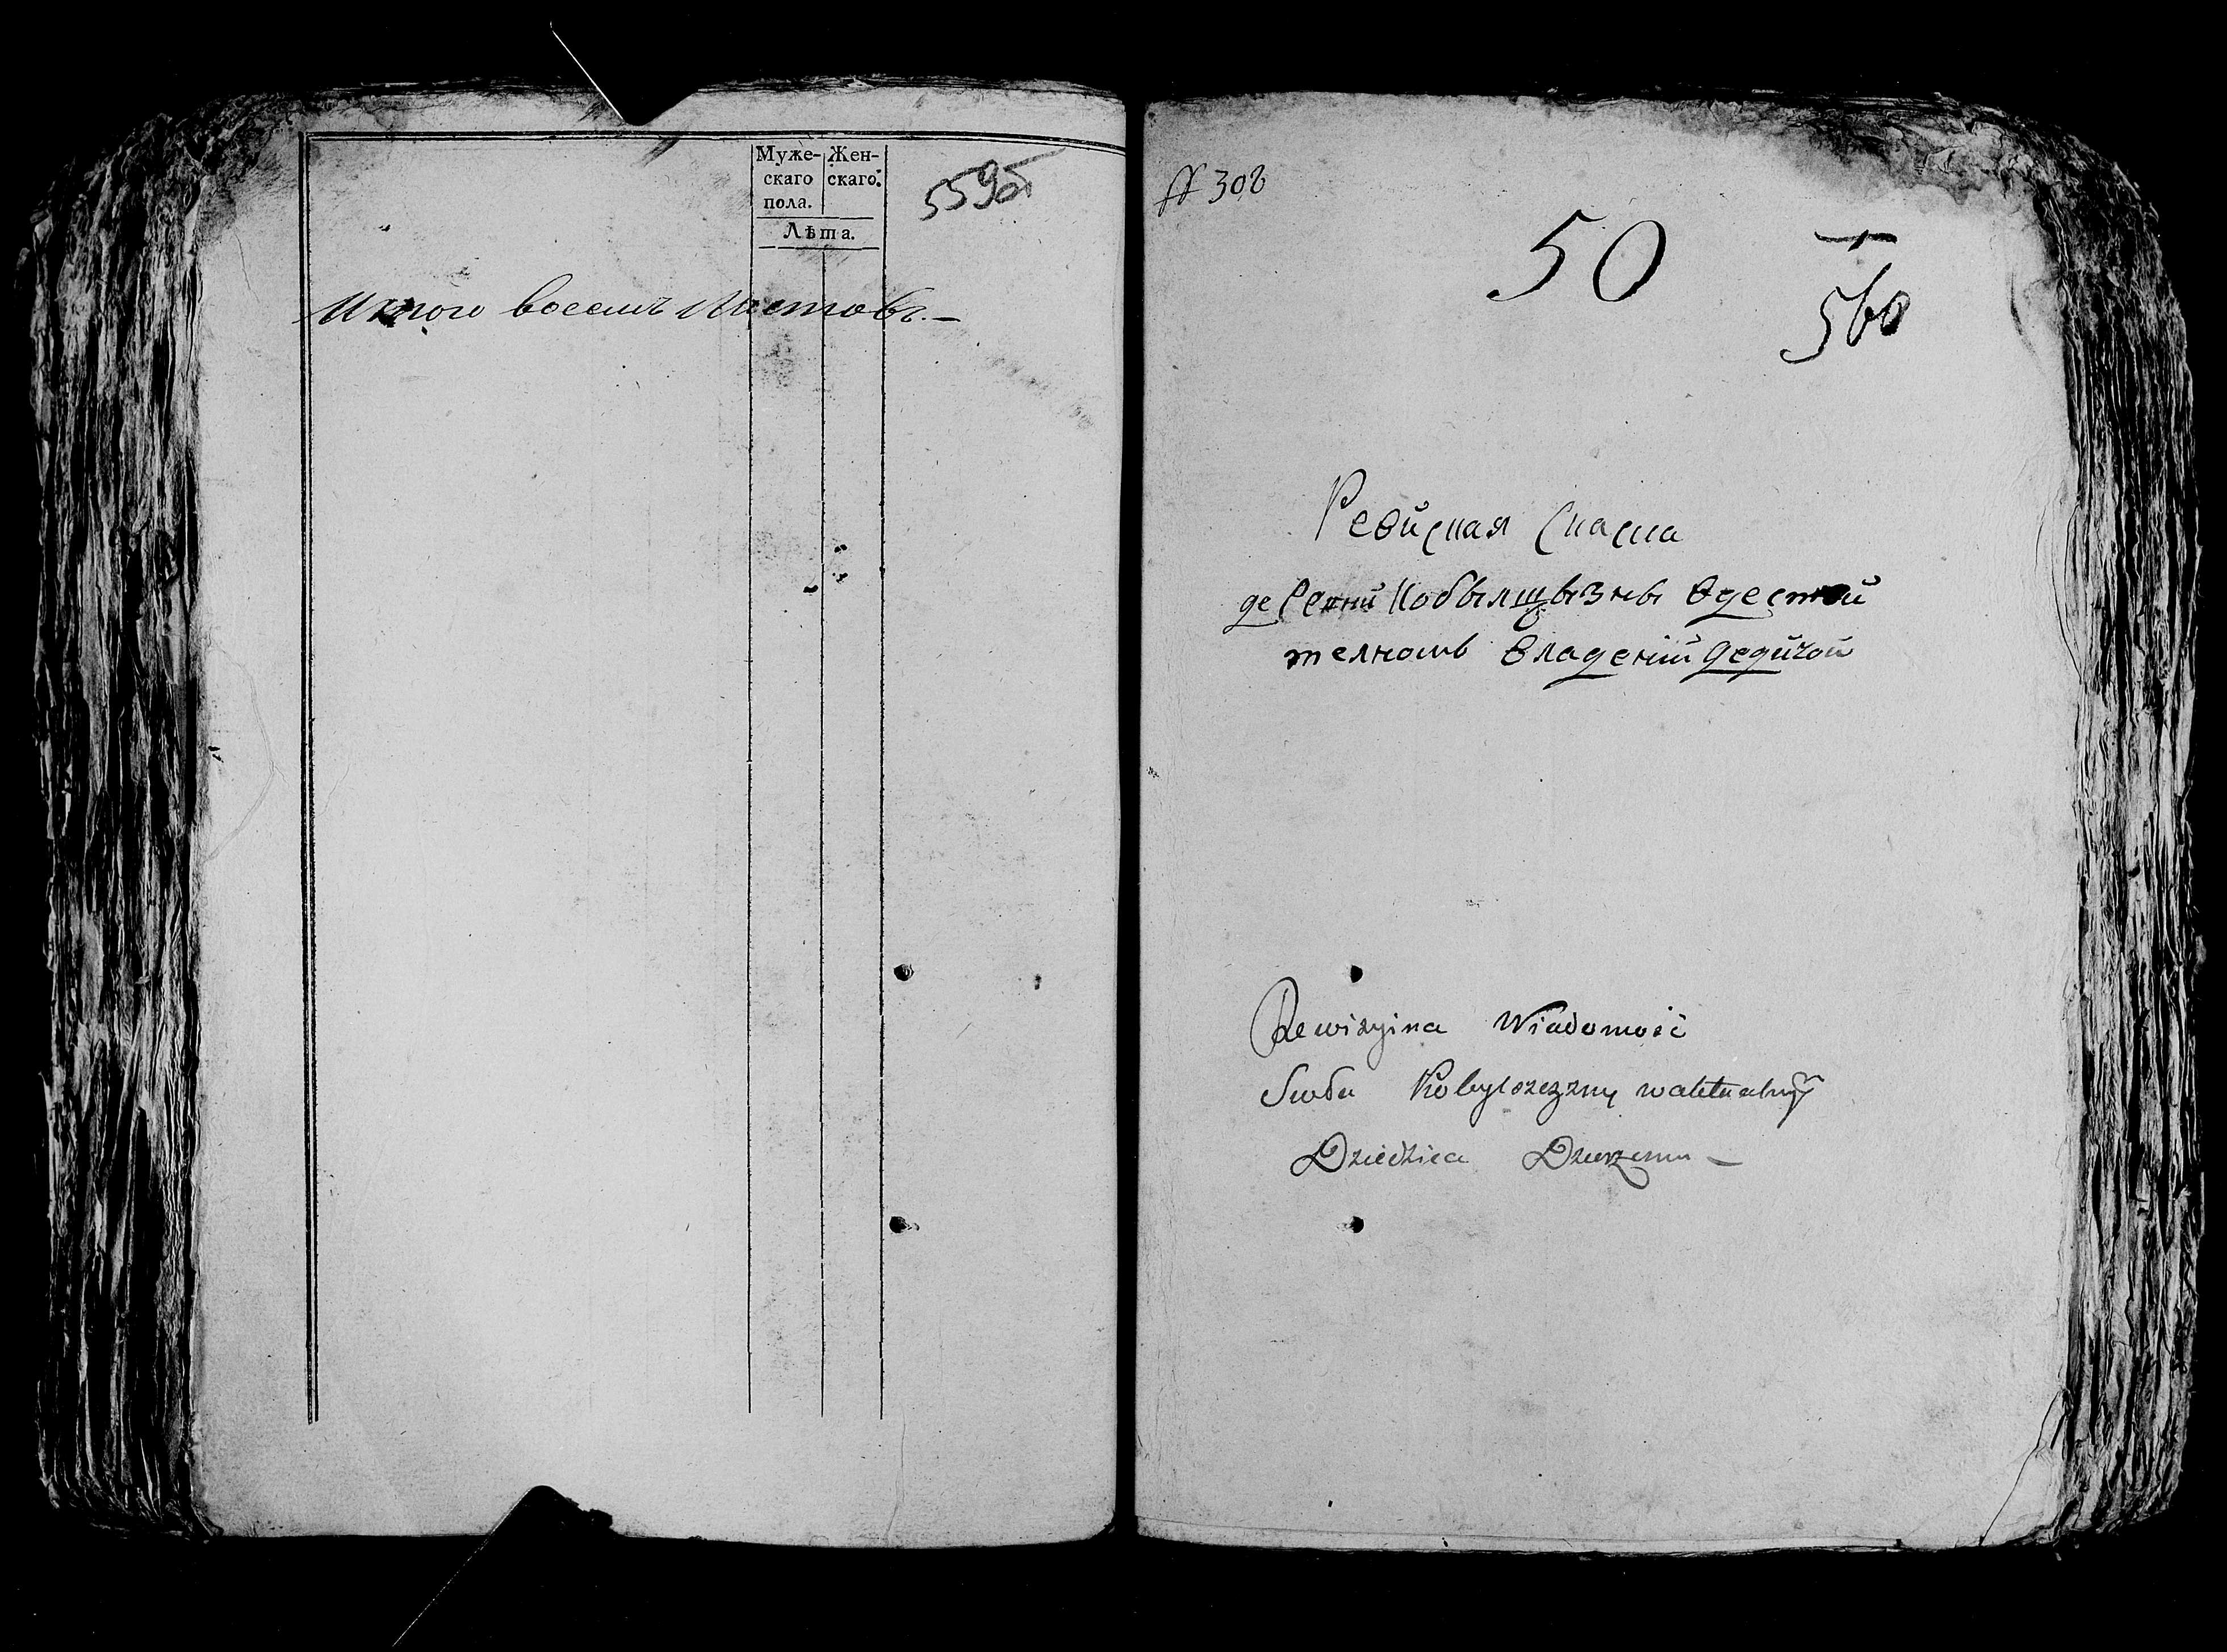 Муже- Жен-
скаго скаго.
пола.
Лѣта.
559об
Итого восемь листовъ.—
№ 308
50
560
Ревиская Скаска
деревни Кобылщызны вдестви
телномъ владении дедичой
Rewizyina Wiadomość
Kobylszczyzny waktualnym
Dziedzica